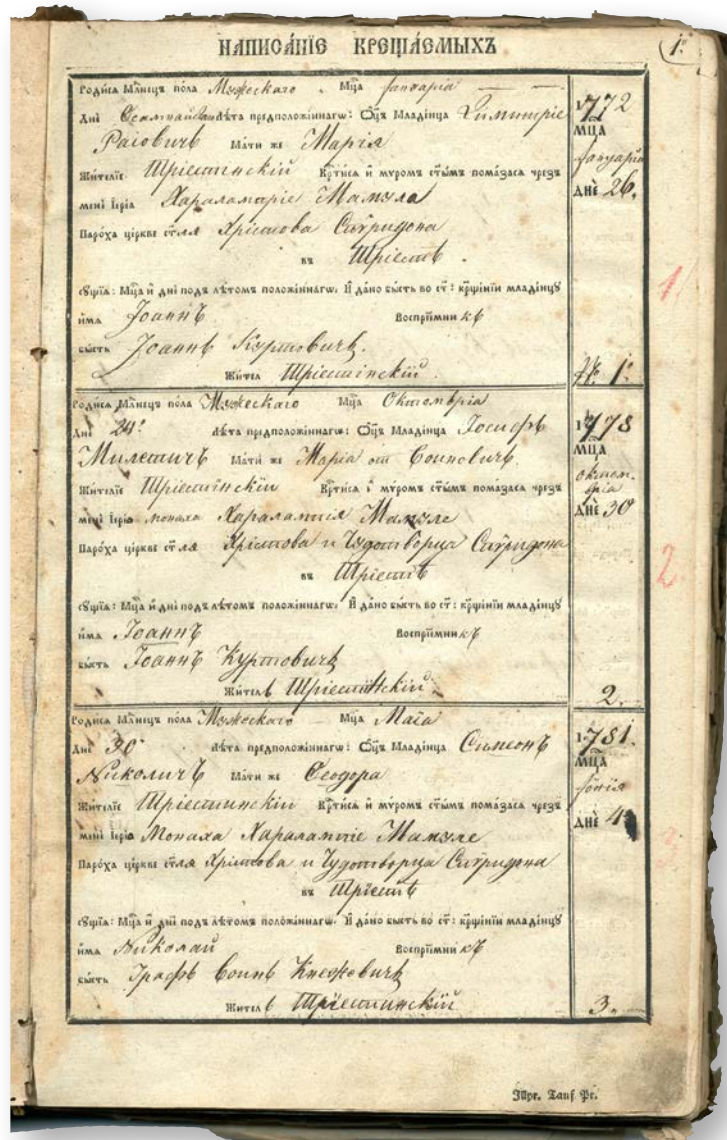 НАПИСА́НЇЕ КРЕЩА́ЕМЫХЪ
1.
Роди́сѧ Мл҃нецъ по́ла Мужескаго Мц҃а Јануаріа
Дні Лѣта предположе́ннагѡ: Ѻц҃ъ Младе́нца Димитріе
Раіовичь Ма́ти же Маріѧ
Жи́телїе Тріестинскій Кр҃ти́сѧ и҆ мѵ́ромъ ст҃ы́мъ пома́засѧ чрезъ
менѐ І҆ере́а Харалампіе Мамула
Паро́ха це́ркве ст҃лѧ Хрістова Спѵридона
въ Тріестѣ.
сꙋ́щїѧ: Мц҃а и҆ дні̀ подъ лѣ́томъ положе́ннагѡ. И҆ да́но бы́сть во ст҃: кр҃ще́нїи младе́нцꙋ
и҆́мѧ Јоаннъ Воспрїе́мникъ
бы́сть Јоаннъ Куртовичъ.
Жи́тел Тріестинскій.
1772
МЦ҃А
Јануаріа
ДНЀ 26.
№ 1.
1.
Роди́сѧ Мл҃нецъ по́ла Мужескаго Мц҃а Октомвріа
Дні 24. Лѣта предположе́ннагѡ: Ѻц҃ъ Младе́нца Іосифъ
Милетичъ Ма́ти же Маріа от Воиновичъ
Жи́телїе Тріестинскїи Кр҃ти́сѧ и҆ мѵ́ромъ ст҃ы́мъ пома́засѧ чрезъ
менѐ І҆ере́а монаха Харалампіѧ Мамуле
Паро́ха це́ркве ст҃лѧ Хрістова и Чудотворца Спѵридона
въ Тріестѣ
сꙋ́щїѧ: Мц҃а и҆ дні̀ подъ лѣ́томъ положе́ннагѡ. И҆ да́но бы́сть во ст҃: кр҃ще́нїи младе́нцꙋ
и҆́мѧ Іоаннъ Воспрїе́мникъ
бы́сть Іоаннъ Куртовичъ
Жи́телѣ Тріестинскій
1778
МЦ҃А
октом.
вріа
ДНЀ 30
2.
2
Роди́сѧ Мл҃нецъ по́ла Мужескаго Мц҃а Маїа
Дні 30 Лѣта предположе́ннагѡ: Ѻц҃ъ Младе́нца Симеонъ
Николичъ Ма́ти же Ѳеодора
Жи́телїе Тріестинскій Кр҃ти́сѧ и҆ мѵ́ромъ ст҃ы́мъ пома́засѧ чрезъ
менѐ І҆ере́а Монаха Харалампіе Мамуле
Паро́ха це́ркве ст҃лѧ Хрістова и Чудотворца Спѵридона
въ Тріестѣ
сꙋ́щїѧ: Мц҃а и҆ дні̀ подъ лѣ́томъ положе́ннагѡ. И҆ да́но бы́сть во ст҃: кр҃ще́нїи младе́нцꙋ
и҆́мѧ Николай Воспрїе́мникъ
бы́сть Графъ Воинъ Кнежевичъ
Жи́телѣ Тріестинскїй
1781.
МЦ҃А
Јунїа
ДНЀ 4
3.
3
Illyr. Tauf Pr.